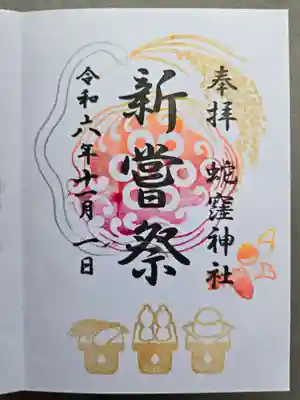 奉拝 蛇窪神社
新嘗祭
令和六年十一月一日